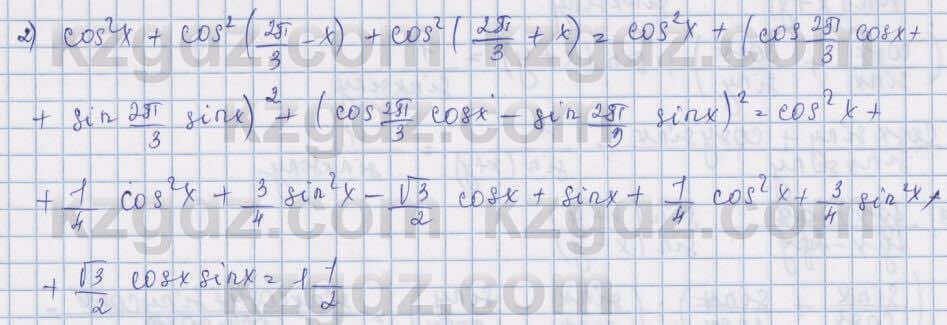 2) cos²x + cos²(2π/3 - x) + cos²(2π/3 + x) = cos²x + (cos 2π/3 cosx +
+ sin 2π/3 sinx)² + (cos 2π/3 cosx - sin 2π/9 sinx)² = cos²x +
+ 1/4 cos²x + 3/4 sin²x - √3/2 cosx + sinx + 1/4 cos²x + 3/4 sin²x +
+ √3/2 cosx sinx = 1 1/2
kzgdz.com